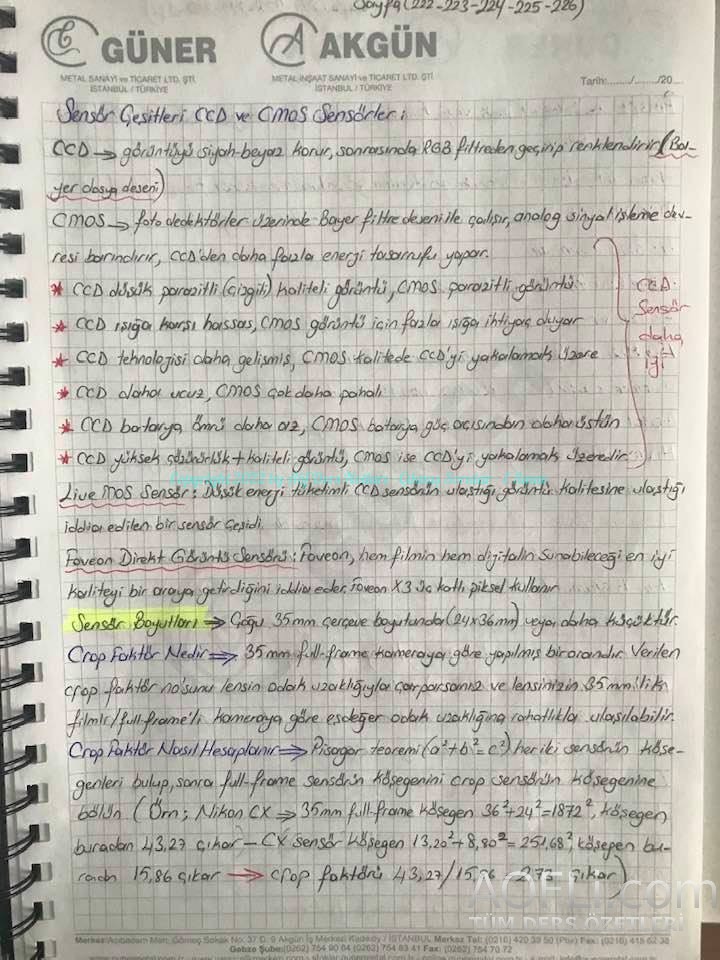 Sayfa (222-223-224-225-226)
GÜNER
METAL SANAYİ ve TİCARET LTD. ŞTİ.
İSTANBUL / TÜRKİYE
AKGÜN
METAL-İNŞAAT SANAYİ ve TİCARET LTD. ŞTİ.
İSTANBUL / TÜRKİYE
Tarih:......../......../20....
Sensör Çeşitleri CCD ve CMOS Sensörler:
CCD → görüntüyü siyah-beyaz korur, sonrasında RGB filtreden geçirip renklendirir (Ba-
yer dosya deseni)
CMOS → foto dedektörler üzerinde Bayer filtre deseni ile çalışır, analog sinyal işleme dev-
resi barındırır, CCD'den daha fazla enerji tasarrufu yapar.
* CCD düşük parazitli (çizgili) kaliteli görüntü, CMOS parazitli görüntü
* CCD ışığa karşı hassas, CMOS görüntü için fazla ışığa ihtiyaç duyar
* CCD teknolojisi daha gelişmiş, CMOS kalitede CCD'yi yakalamak üzere
* CCD daha ucuz, CMOS çok daha pahalı
* CCD batarya ömrü daha az, CMOS batarya güç açısından daha üstün
* CCD yüksek çözünürlük + kaliteli görüntü, CMOS ise CCD'yi yakalamak üzeredir.
CCD
Sensör
daha
iyi
Live MOS Sensör: Düşük enerji tüketimli CCD sensörün ulaştığı görüntü kalitesine ulaştığı
iddia edilen bir sensör çeşidi.
Foveon Direkt Görüntü Sensörü: Foveon, hem filmin hem digitalin sunabileceği en iyi
kaliteyi bir araya getirdiğini iddia eder. Foveon X3 üç katlı piksel kullanır
Sensör Boyutları ⇒ Çoğu 35mm çerçeve boyutunda (24x36mm) veya daha küçüktür.
Crop Faktör Nedir ⇒ 35mm full-frame kameraya göre yapılmış bir orandır. Verilen
crop faktör no'sunu lensin odak uzaklığıyla çarparsanız ve lensinizin 35mm'lik
filmli/full-frame'li kameraya göre eşdeğer odak uzaklığına rahatlıkla ulaşılabilir.
Crop Faktör Nasıl Hesaplanır ⇒ Pisagor teoremi (a²+b²=c²) her iki sensörün köşe-
genleri bulup, sonra full-frame sensörün köşegenini crop sensörün köşegenine
bölün (Örn; Nikon CX ⇒ 35mm full-frame köşegen 36²+24²=1872², köşegen
buradan 43,27 çıkar - CX sensör köşegen 13,20²+8,80²=251,68², köşegen bu-
radan 15,86 çıkar → crop faktörü 43,27/15,86 2,73 çıkar)
AOFLI.com
TÜM DERS ÖZETLERİ